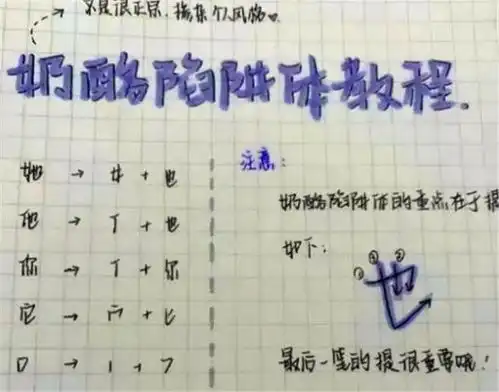 不是很正宗,掺杂个人风格。
奶酪陷阱体教程.
她 → 女 + 也
他 → 亻 + 也
你 → 亻 + 尔
它 → 宀 + 匕
口 → 丨 + ㄱ
注意:
奶酪陷阱体的重点在于提
如下:
① ② ③
也
最后一笔的提很重要哦!